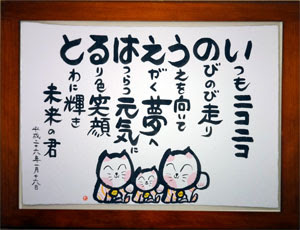 いつもニコニコ
のびのび走り
うえを向いて
えがく夢へ
はつらつ元気に
るり色笑顔
とわに輝き
未来の君
平成二十六年一月十六日